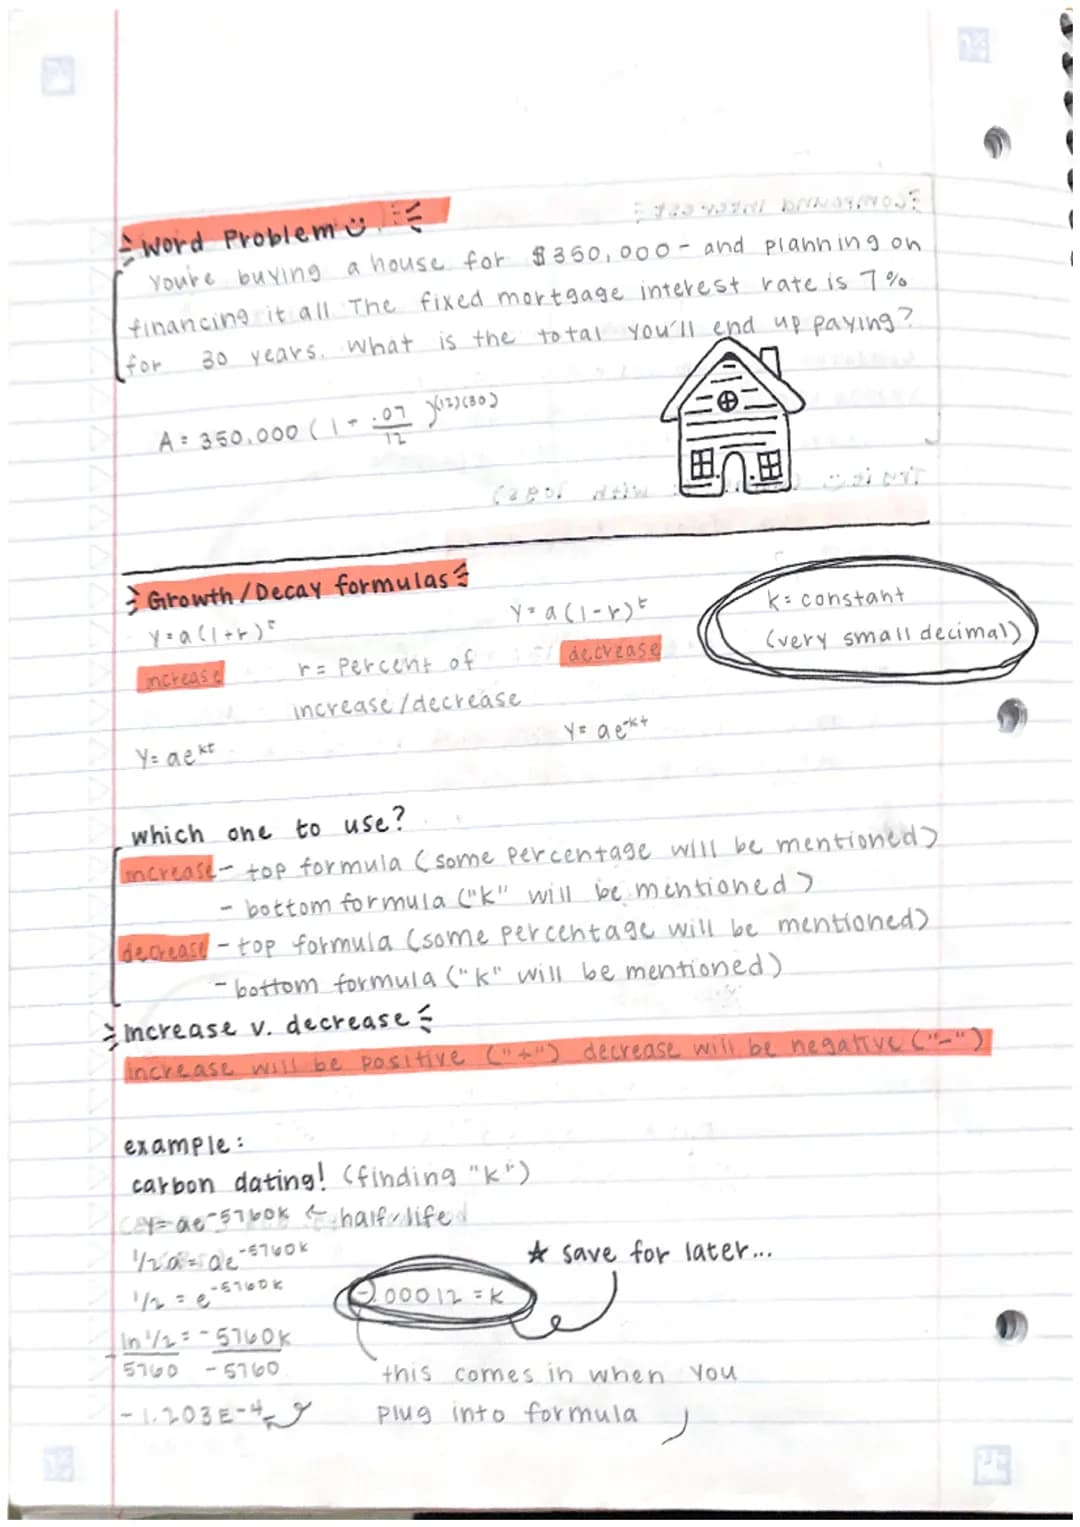 Word Problem
You're buying a house for $350,000 - and planning on
financing it all The fixed mortgage interest rate is 7%
for 30 years. What is the total you'll end up paying?
A = 350,000 (1 + .07/12)^(12)(30)
Growth/Decay formulas
y = a(1+r)^t
y = a(1-r)^t
k = constant
(very small decimal)
increase
r = percent of
increase/decrease
decrease
y = ae^kt
y = ae^-kt
which one to use?
increase - top formula (some percentage will be mentioned)
- bottom formula ("k" will be mentioned)
decrease - top formula (some percentage will be mentioned)
- bottom formula ("k" will be mentioned)
Increase v. decrease
increase will be positive ("+") decrease will be negative ("-")
example:
carbon dating! (finding "k")
y = ae^-5760k ← half life
1/2 a = ae^-5760k
★ save for later...
1/2 = e^-5760k
-.00012 = k
ln 1/2 = -5760k
5760 -5760
this comes in when you
-1.203E-4
plug into formula